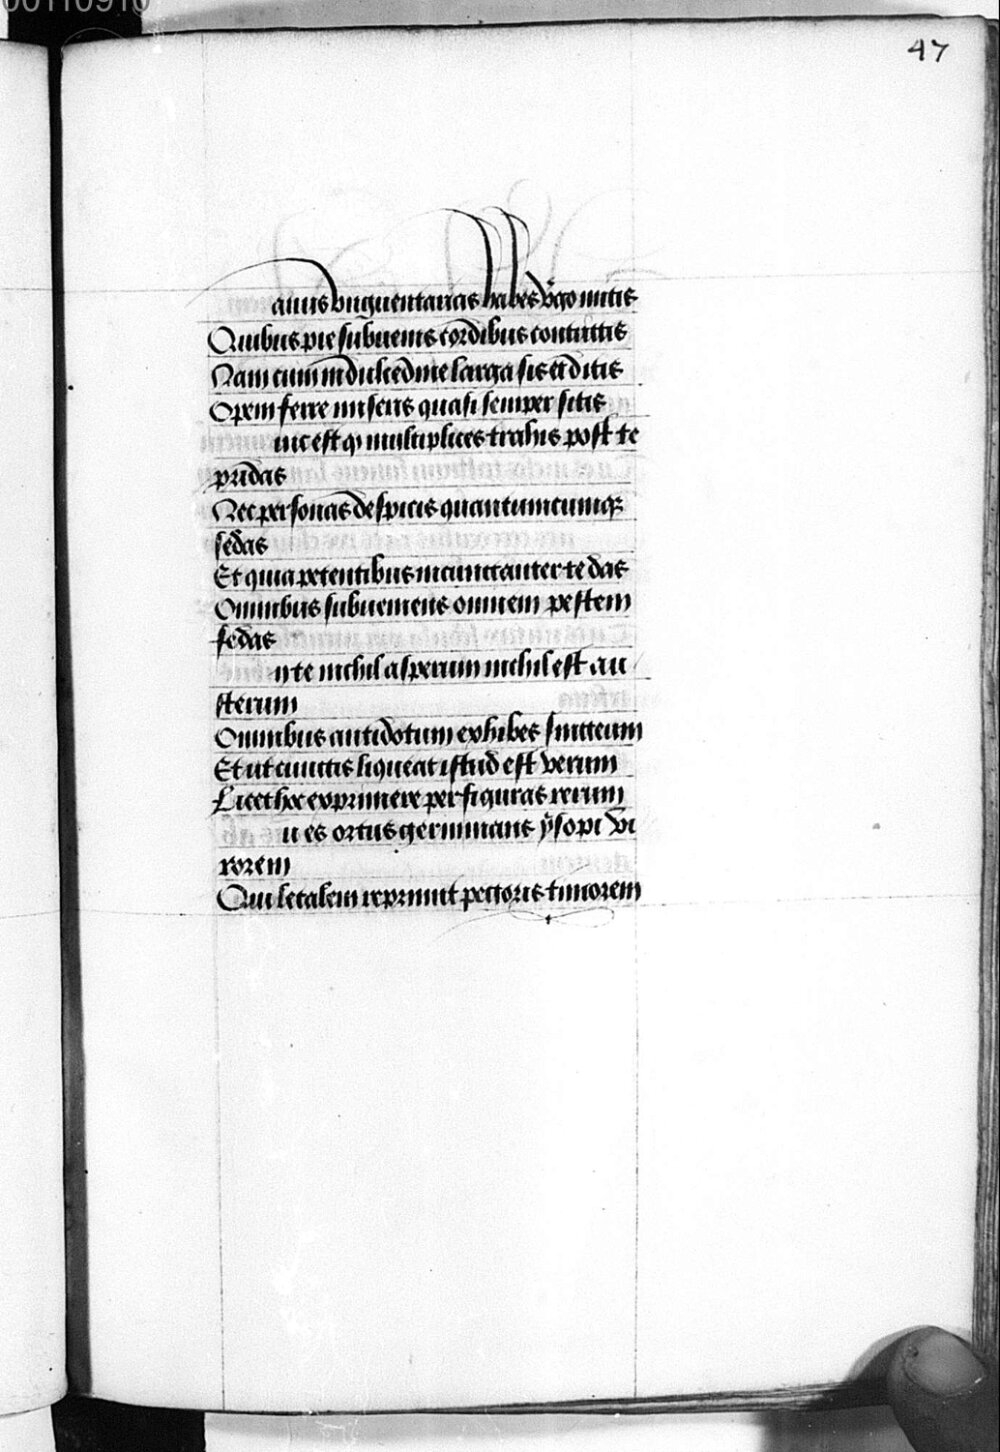 00110910
47
anus vnguentarias habes v̄go mitis
Quibus pie subuenis cordibus contritis
Nam cum in dulcedine larga sis et ditis
Opem ferre miseris quasi semper sitis
inc est qͥ multiplices trahis post te
predas
Nec personas despicis quantumcumqꝫ
fedas
Et quia petentibus incunctanter te das
Omnibus subueniens omnem pestem
sedas
n te nichil asperum nichil est au
sterum
Omnibus antidotum exhibes sincerum
Et ut cunctis liqueat istud est verum
Licet hec exprimere per figuras rerum
u es ortus germinans ysopi vi
rorem
Qui letalem reprimit pectoris timorem